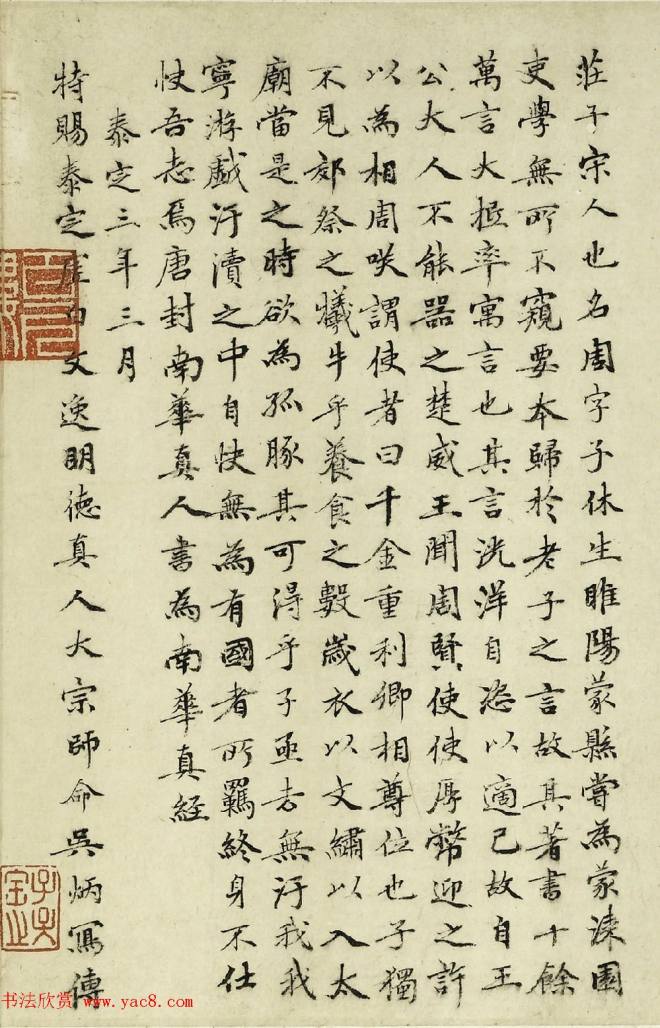 莊子宋人也名周字子休生睢陽蒙縣嘗為蒙漆園
吏學無所不窺要本歸於老子之言故其著書十餘
萬言大抵率寓言也其言洸洋自恣以適己故自王
公大人不能器之楚威王聞周賢使使厚幣迎之許
以為相周咲謂使者曰千金重利卿相尊位也子獨
不見郊祭之犧牛乎養食之數歲衣以文繡以入太
廟當是之時欲為孤豚其可得乎子亟去無汙我我
寧游戲汙瀆之中自快無為有國者所羈終身不仕
快吾志焉唐封南華真人書為南華真経
泰定三年三月
特賜泰定虛白文逸明德真人大宗師命吳炳寫傳
书法欣赏 www.yac8.com